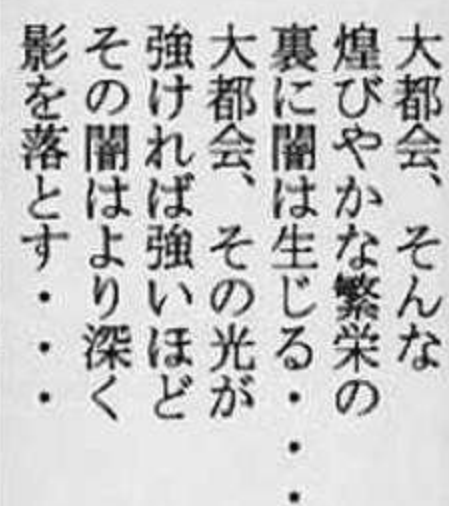 大都会、そんな
煌びやかな繁栄の
裏に闇は生じる・・・
大都会、その光が
強ければ強いほど
その闇はより深く
影を落とす・・・